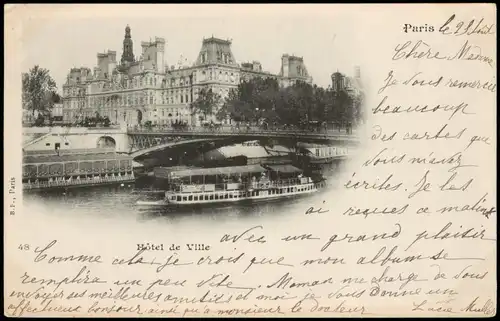 Paris le 22 Août
Chère Mme
Je vous remercie
beaucoup
des cartes que
vous m'avez
écrites. Je les
ai reçues ce matin
avec un grand plaisir
48
Hôtel de Ville
B.F., Paris
Comme cela je crois que mon album se
remplira un peu vite. Maman me charge de vous
envoyer ses meilleures amitiés et moi je vous donne un
affectueux bonsoir ainsi qu'à monsieur le docteur
Lucie